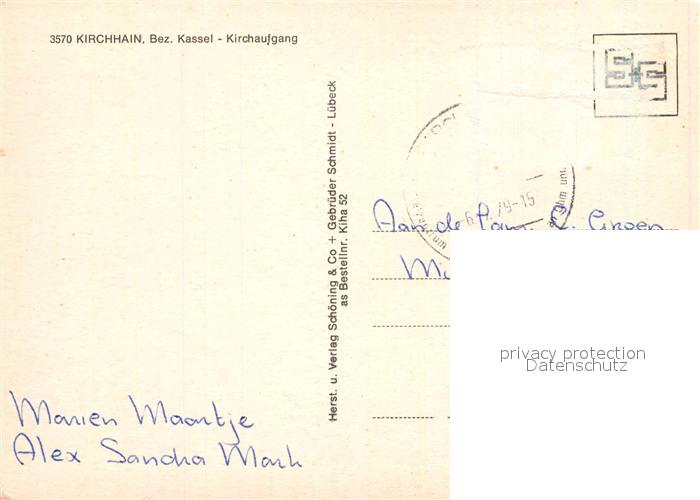 3570 KIRCHHAIN, Bez. Kassel - Kirchaufgang
Herst. u. Verlag Schöning & Co + Gebrüder Schmidt - Lübeck
as Bestellnr. Kiha 52
79-15
Aan de Fam. Groen
Marien Maartje
Alex Sandra Mark
privacy protection
Datenschutz